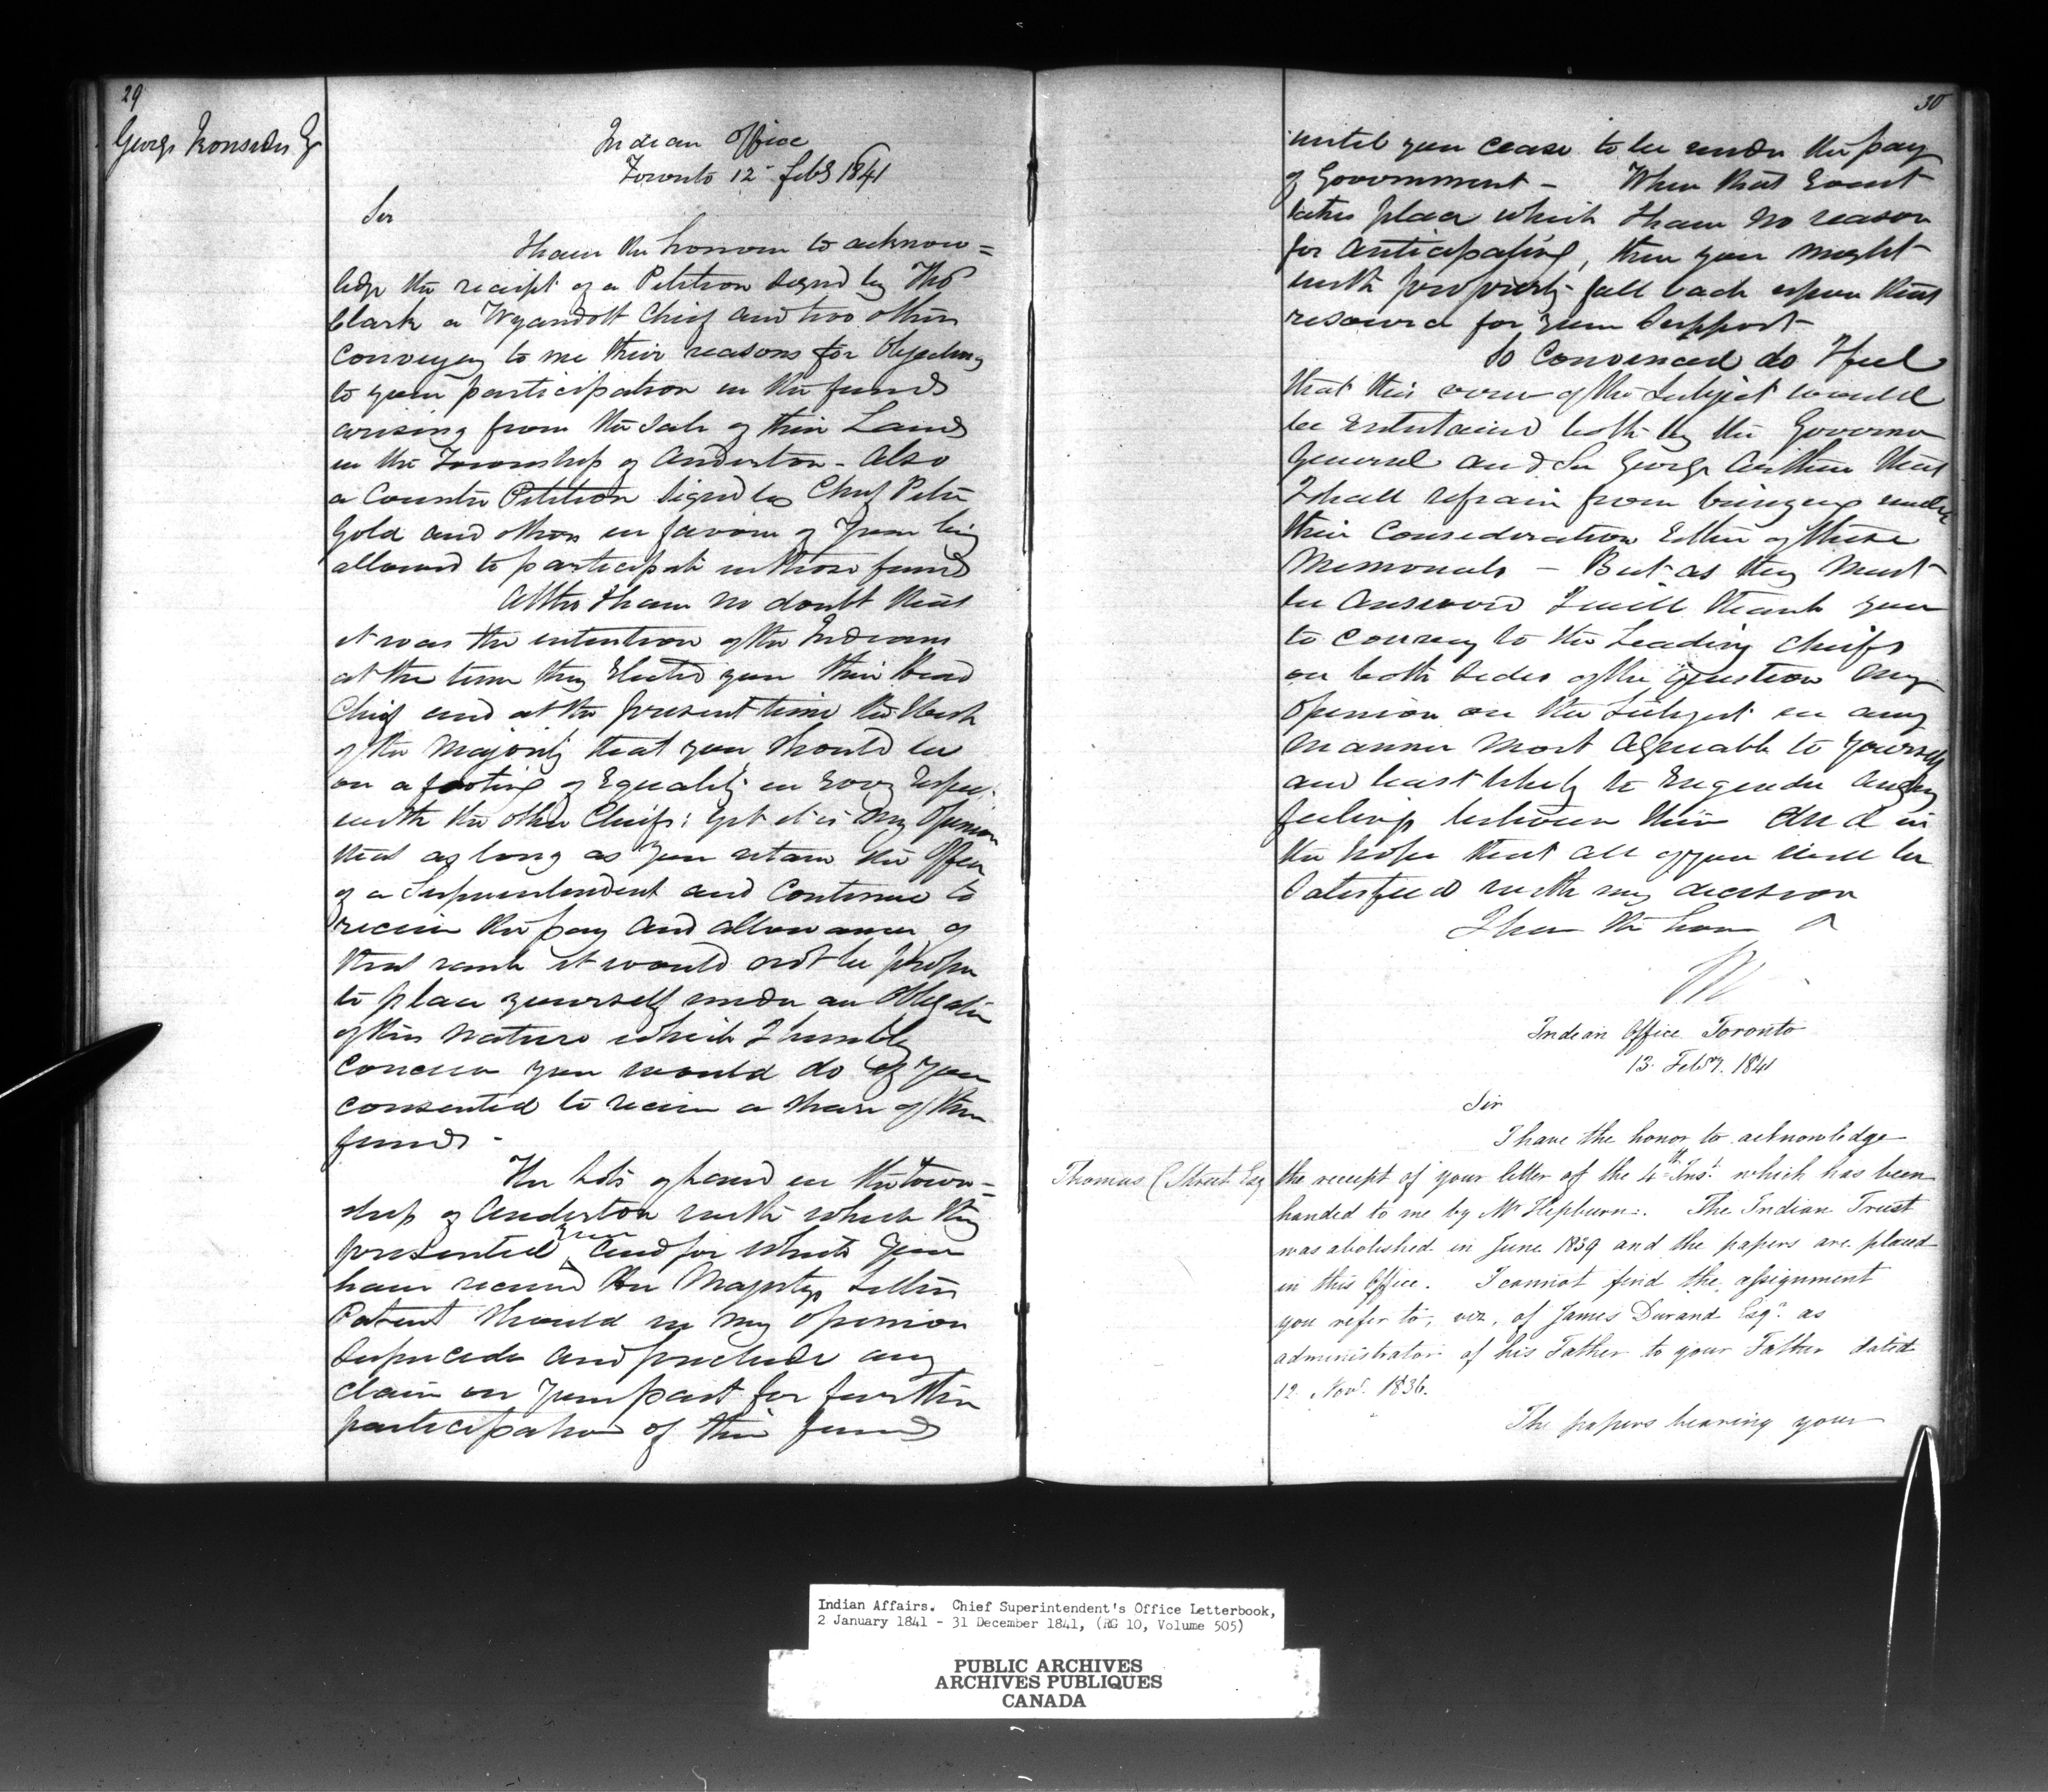 29
George Ironside Esqr
Indian Office
Toronto 12 Feby 1841
Sir
I have the honour to acknow=
ledge the receipt of a Petition signed by Thos
Clark a Wyandott Chief and two others
conveying to me their reasons for objecting
to your participation in the funds
arising from the sale of their Lands
in the Township of Anderdon - Also
a Counter Petition signed by Chief Peter
Gold and others in favour of your being
allowed to participate in those funds
Altho I have no doubt that
it was the intention of the Indians
at the time they Elected you their Head
Chief and at the present time the Wish
of the Majority that you should be
on a footing of Equality in Every Respect
with the other Chiefs; yet it is my Opinion
that as long as you retain the Office
of a Superintendent and Continue to
receive the pay and allowances of
that rank it would not be proper
to place yourself under an Obligation
of this nature which I humbly
conceive you would do if you
consented to receive a share of their
funds -
The Lots of Land in the town=
ship of Anderdon with which they
presented you and for which you
have received Her Majestys Letters
Patent should in my opinion
supercede and preclude any
claim on your part for further
participation of their funds
30
until you cease to be under the pay
of Government - When that Event
takes place which I have no reason
for anticipating, then you might
with propriety fall back upon that
resource for your support
So Convinced do I feel
that this view of the Subject would
be Entertained both by the Governor
General and Sir George Arthur that
I shall refrain from bringing under
their Consideration Either of these
Memorials - But as they must
be answered I will thank you
to convey to the Leading Chiefs
on both sides of the Question my
opinion on the Subject in any
manner most agreeable to yourself
and least likely to Engender angry
feelings between them And in
the hope that all of you will be
Satisfied with my decision
I have the honor
Indian Office Toronto
13 Feby. 1841
Sir
I have the honor to acknowledge
Thomas C Street Esq
the receipt of your letter of the 4th Inst. which has been
handed to me by Mr Hepburn. The Indian Trust
was abolished in June 1839 and the papers are placed
in this Office. I cannot find the assignment
you refer to, viz, of James Durand Esqr. as
administrator of his Father to your Father dated
12 Novr. 1836.
The papers bearing your
Indian Affairs. Chief Superintendent's Office Letterbook,
2 January 1841 - 31 December 1841, (RG 10, Volume 505)
PUBLIC ARCHIVES
ARCHIVES PUBLIQUES
CANADA